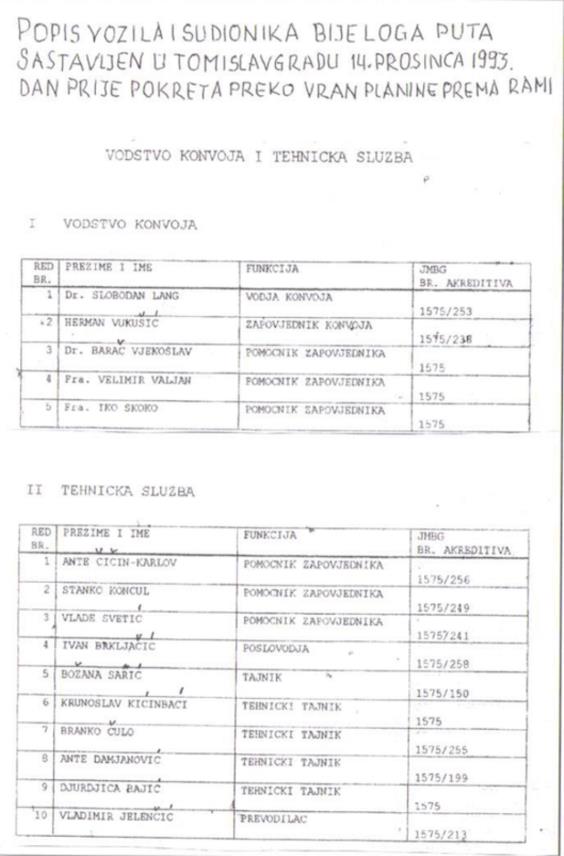 POPIS VOZILA I SUDIONIKA BIJELOGA PUTA
SASTAVLJEN U TOMISLAVGRADU 14. PROSINCA 1993.
DAN PRIJE POKRETA PREKO VRAN PLANINE PREMA RAMI
VODSTVO KONVOJA I TEHNICKA SLUZBA
I VODSTVO KONVOJA
RED BR. PREZIME I IME FUNKCIJA JMBG BR. AKREDITIVA
1 Dr. SLOBODAN LANG VODJA KONVOJA 1575/253
2 HERMAN VUKUŠIĆ ZAPOVJEDNIK KONVOJA 1575/238
3 Dr. BARAČ VJEKOSLAV POMOCNIK ZAPOVJEDNIKA 1575
4 Fra. VELIMIR VALJAN POMOCNIK ZAPOVJEDNIKA 1575
5 Fra. IKO SKOKO POMOCNIK ZAPOVJEDNIKA 1575
II TEHNICKA SLUZBA
RED BR. PREZIME I IME FUNKCIJA JMBG BR. AKREDITIVA
1 ANTE ČIČIN-KARLOV POMOCNIK ZAPOVJEDNIKA 1575/256
2 STANKO KONCUL POMOCNIK ZAPOVJEDNIKA 1575/249
3 VLADE SVETIĆ POMOCNIK ZAPOVJEDNIKA 1575/241
4 IVAN BRKLJAČIĆ POSLOVODJA 1575/258
5 BOŽANA ŠARIĆ TAJNIK 1575/150
6 KRUNOSLAV KIĆINBAĆI TEHNICKI TAJNIK 1575
7 BRANKO ČULO TEHNICKI TAJNIK 1575/255
8 ANTE DAMJANOVIĆ TEHNICKI TAJNIK 1575/199
9 DJURDJICA BAJIĆ TEHNICKI TAJNIK 1575
10 VLADIMIR JELENČIĆ PREVODILAC 1575/213